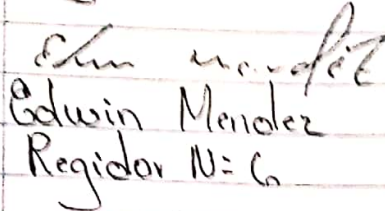 Edwin Mendez
Regidor N= 6